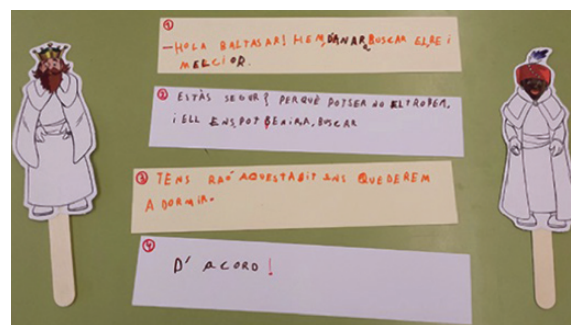 1
—HOLA BALTASAR! HEM DANAR A BUSCAR EL REI
MELCIOR.
2 ESTÀS SEGUR? PERQUÈ POTSER NO EL TROBEM,
I ELL ENS POT BENIRA, BUSCAR
3 TENS RAÓ AQUESTA BIT ENS QUEDEREM
A DORMIR.
4
D' ACORD!